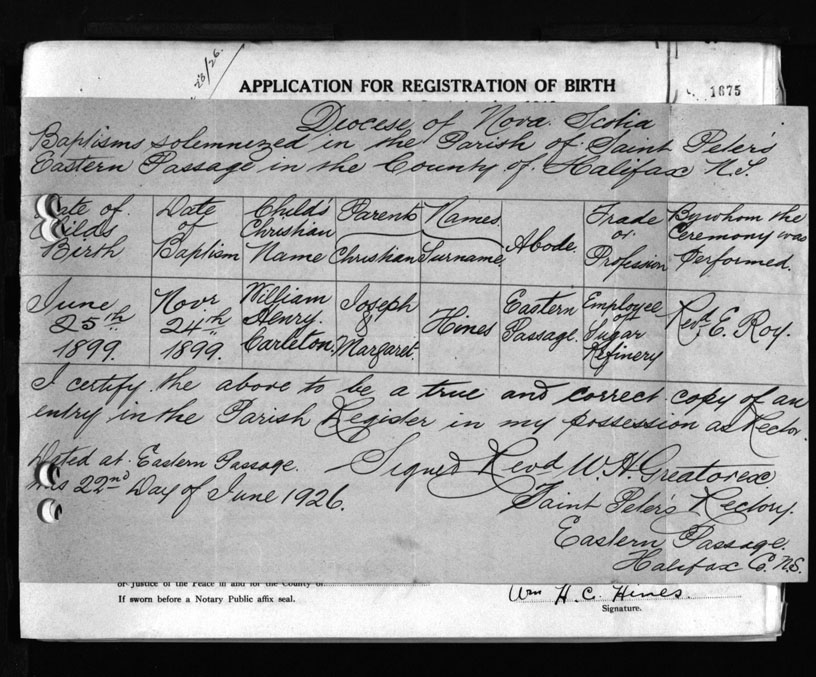 23/26.
APPLICATION FOR REGISTRATION OF BIRTH
1675
Diocese of Nova Scotia
Baptisms solemnized in the Parish of Saint Peter's
Eastern Passage in the County of Halifax N.S.
Date of Childs Birth
Date of Baptism
Child's Christian Name
Parents Names
Christian
Surname
Abode.
Trade or Profession
By whom the Ceremony was Performed.
June 25th 1899.
Novr 24th 1899.
William Henry Carleton.
Joseph & Margaret.
Hines
Eastern Passage.
Employee of Sugar Refinery
Revd. E. Roy.
I certify the above to be a true and correct copy of an
entry in the Parish Register in my possession as Rector.
Dated at Eastern Passage.
this 22nd Day of June 1926.
Signed Revd W. H. Greatorex
Saint Peter's Rectory.
Eastern Passage.
Halifax Co. N.S.
or Justice of the Peace in and for the County of
If sworn before a Notary Public affix seal.
Wm H. C. Hines.
Signature.